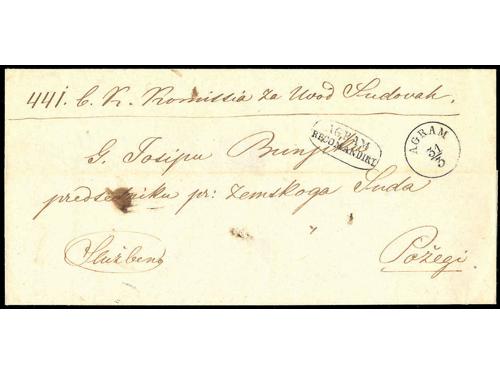 441. C. K. Komissia za Uvod Sudovah.
AGRAM
RECOMANDIRT
AGRAM
31/5
G. Josipu
predsedniku pr: zemskoga Suda
Službeno
Požegi